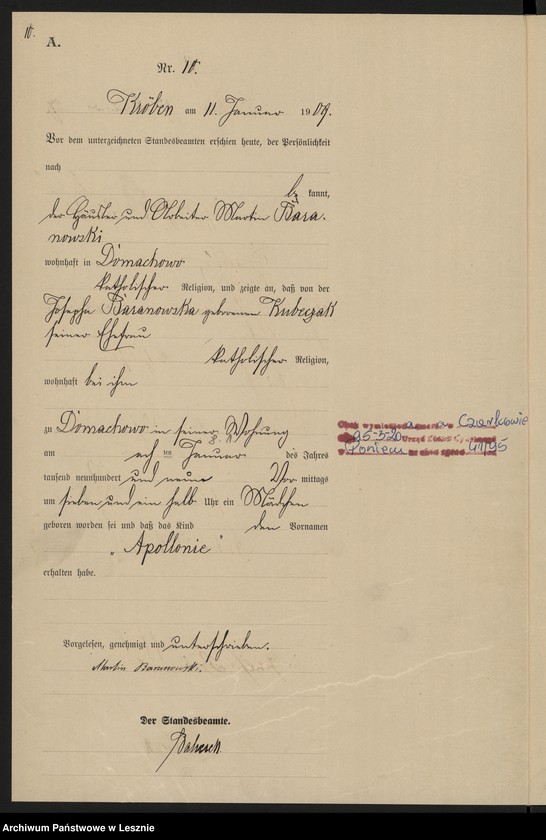 10.
A.
Nr. 10.
Kröben am 11. Januar 1909.
Vor dem unterzeichneten Standesbeamten erschien heute, der Persönlichkeit
nach
be kannt,
der Häusler und Arbeiter Martin Bara-
nowski
wohnhaft in Domachowo
katholischer Religion, und zeigte an, daß von der
Josepha Baranowska geborenen Kubeczak
seiner Ehefrau
katholischer Religion,
wohnhaft bei ihm
zu Domachowo in seiner Wohnung
am acht ten Januar des Jahres
tausend neunhundert und neun Vor mittags
um sieben und ein halb Uhr ein Mädchen
geboren worden sei und daß das Kind den Vornamen
„Apollonie"
erhalten habe.
Vorgelesen, genehmigt und unterschrieben.
Martin Baranowski.
Der Standesbeamte.
w Czarkowie
25-5-20 Urząd Stanu Cywilnego
w Poniecu 41/95
Archiwum Państwowe w Lesznie